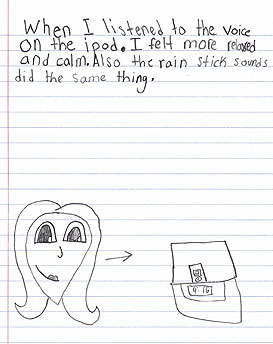 When I listened to the voice
on the ipod. I felt more relaxed
and calm. Also the rain stick sounds
did the same thing.